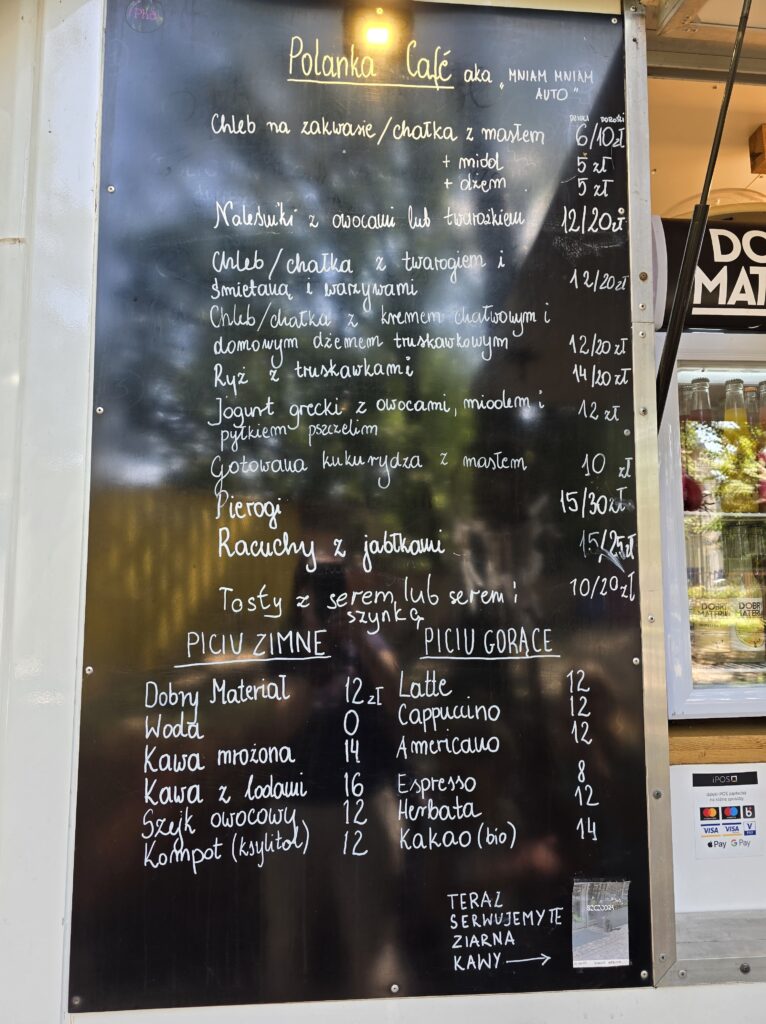 Polanka Café aka "MNIAM MNIAM
AUTO"
Chleb na zakwasie/chałka z masłem 6/10zł
+ miód 5 zł
+ dżem 5 zł
Naleśniki z owocami lub twarożkiem 12/20zł
Chleb/chałka z twarogiem i
śmietaną i warzywami 12/20zł
Chleb/chałka z kremem chałwowym i
domowym dżemem truskawkowym 12/20 zł
Ryż z truskawkami 14/20 zł
Jogurt grecki z owocami, miodem i 12 zł
pyłkiem pszczelim
Gotowana kukurydza z masłem 10 zł
Pierogi 15/30zł
Racuchy z jabłkami 15/25zł
Tosty z serem lub serem i 10/20zł
szynką
PICIU ZIMNE
Dobry Materiał 12 zł
Woda 0
Kawa mrożona 14
Kawa z lodami 16
Szejk owocowy 12
Kompot (ksylitol) 12
PICIU GORĄCE
Latte 12
Cappuccino 12
Americano 12
Espresso 8
Herbata 12
Kakao (bio) 14
TERAZ
SERWUJEMY TE
ZIARNA
KAWY
DO
MAT
iPOS
VISA
VISA
Apple Pay G Pay